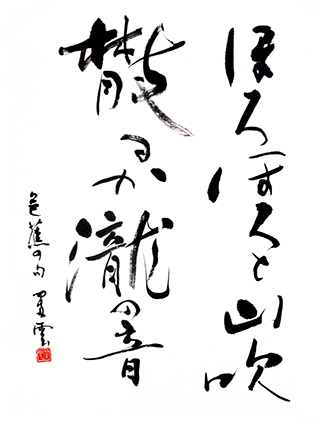 ほろほろと山吹
散るか瀧の音
芭蕉の句